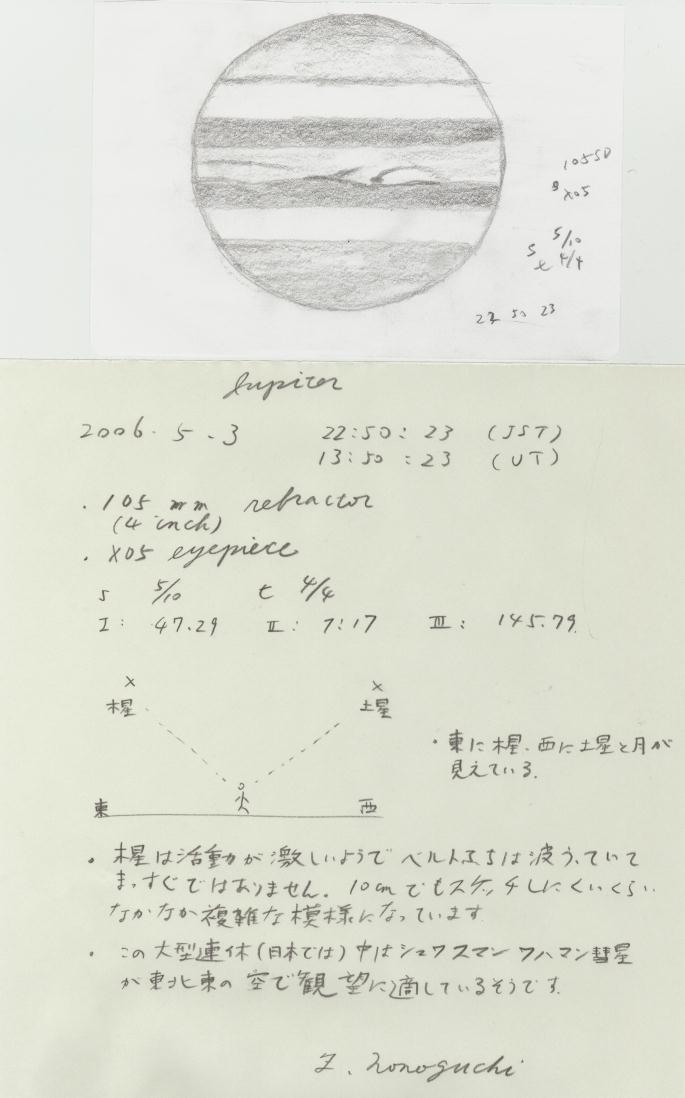 105SD
X05
s 5/10
t 4/4
22 50 23
Jupiter
2006. 5. 3 22:50:23 (JST)
13:50:23 (UT)
・105 mm refractor
(4 inch)
・X05 eyepiece
s 5/10 t 4/4
I: 47.29 II: 7.17 III: 145.79
× ×
木星 土星
・東に木星、西に土星と月が
見えている。
東 西
・木星は活動が激しいようでベルトふちは波うっていて
まっすぐではありません。10cmでもスケッチしにくいくらい
なかなか複雑な模様になっています
・この大型連休(日本では)中はシュワスマンワハマン彗星
が東北東の空で観望に適しているそうです。